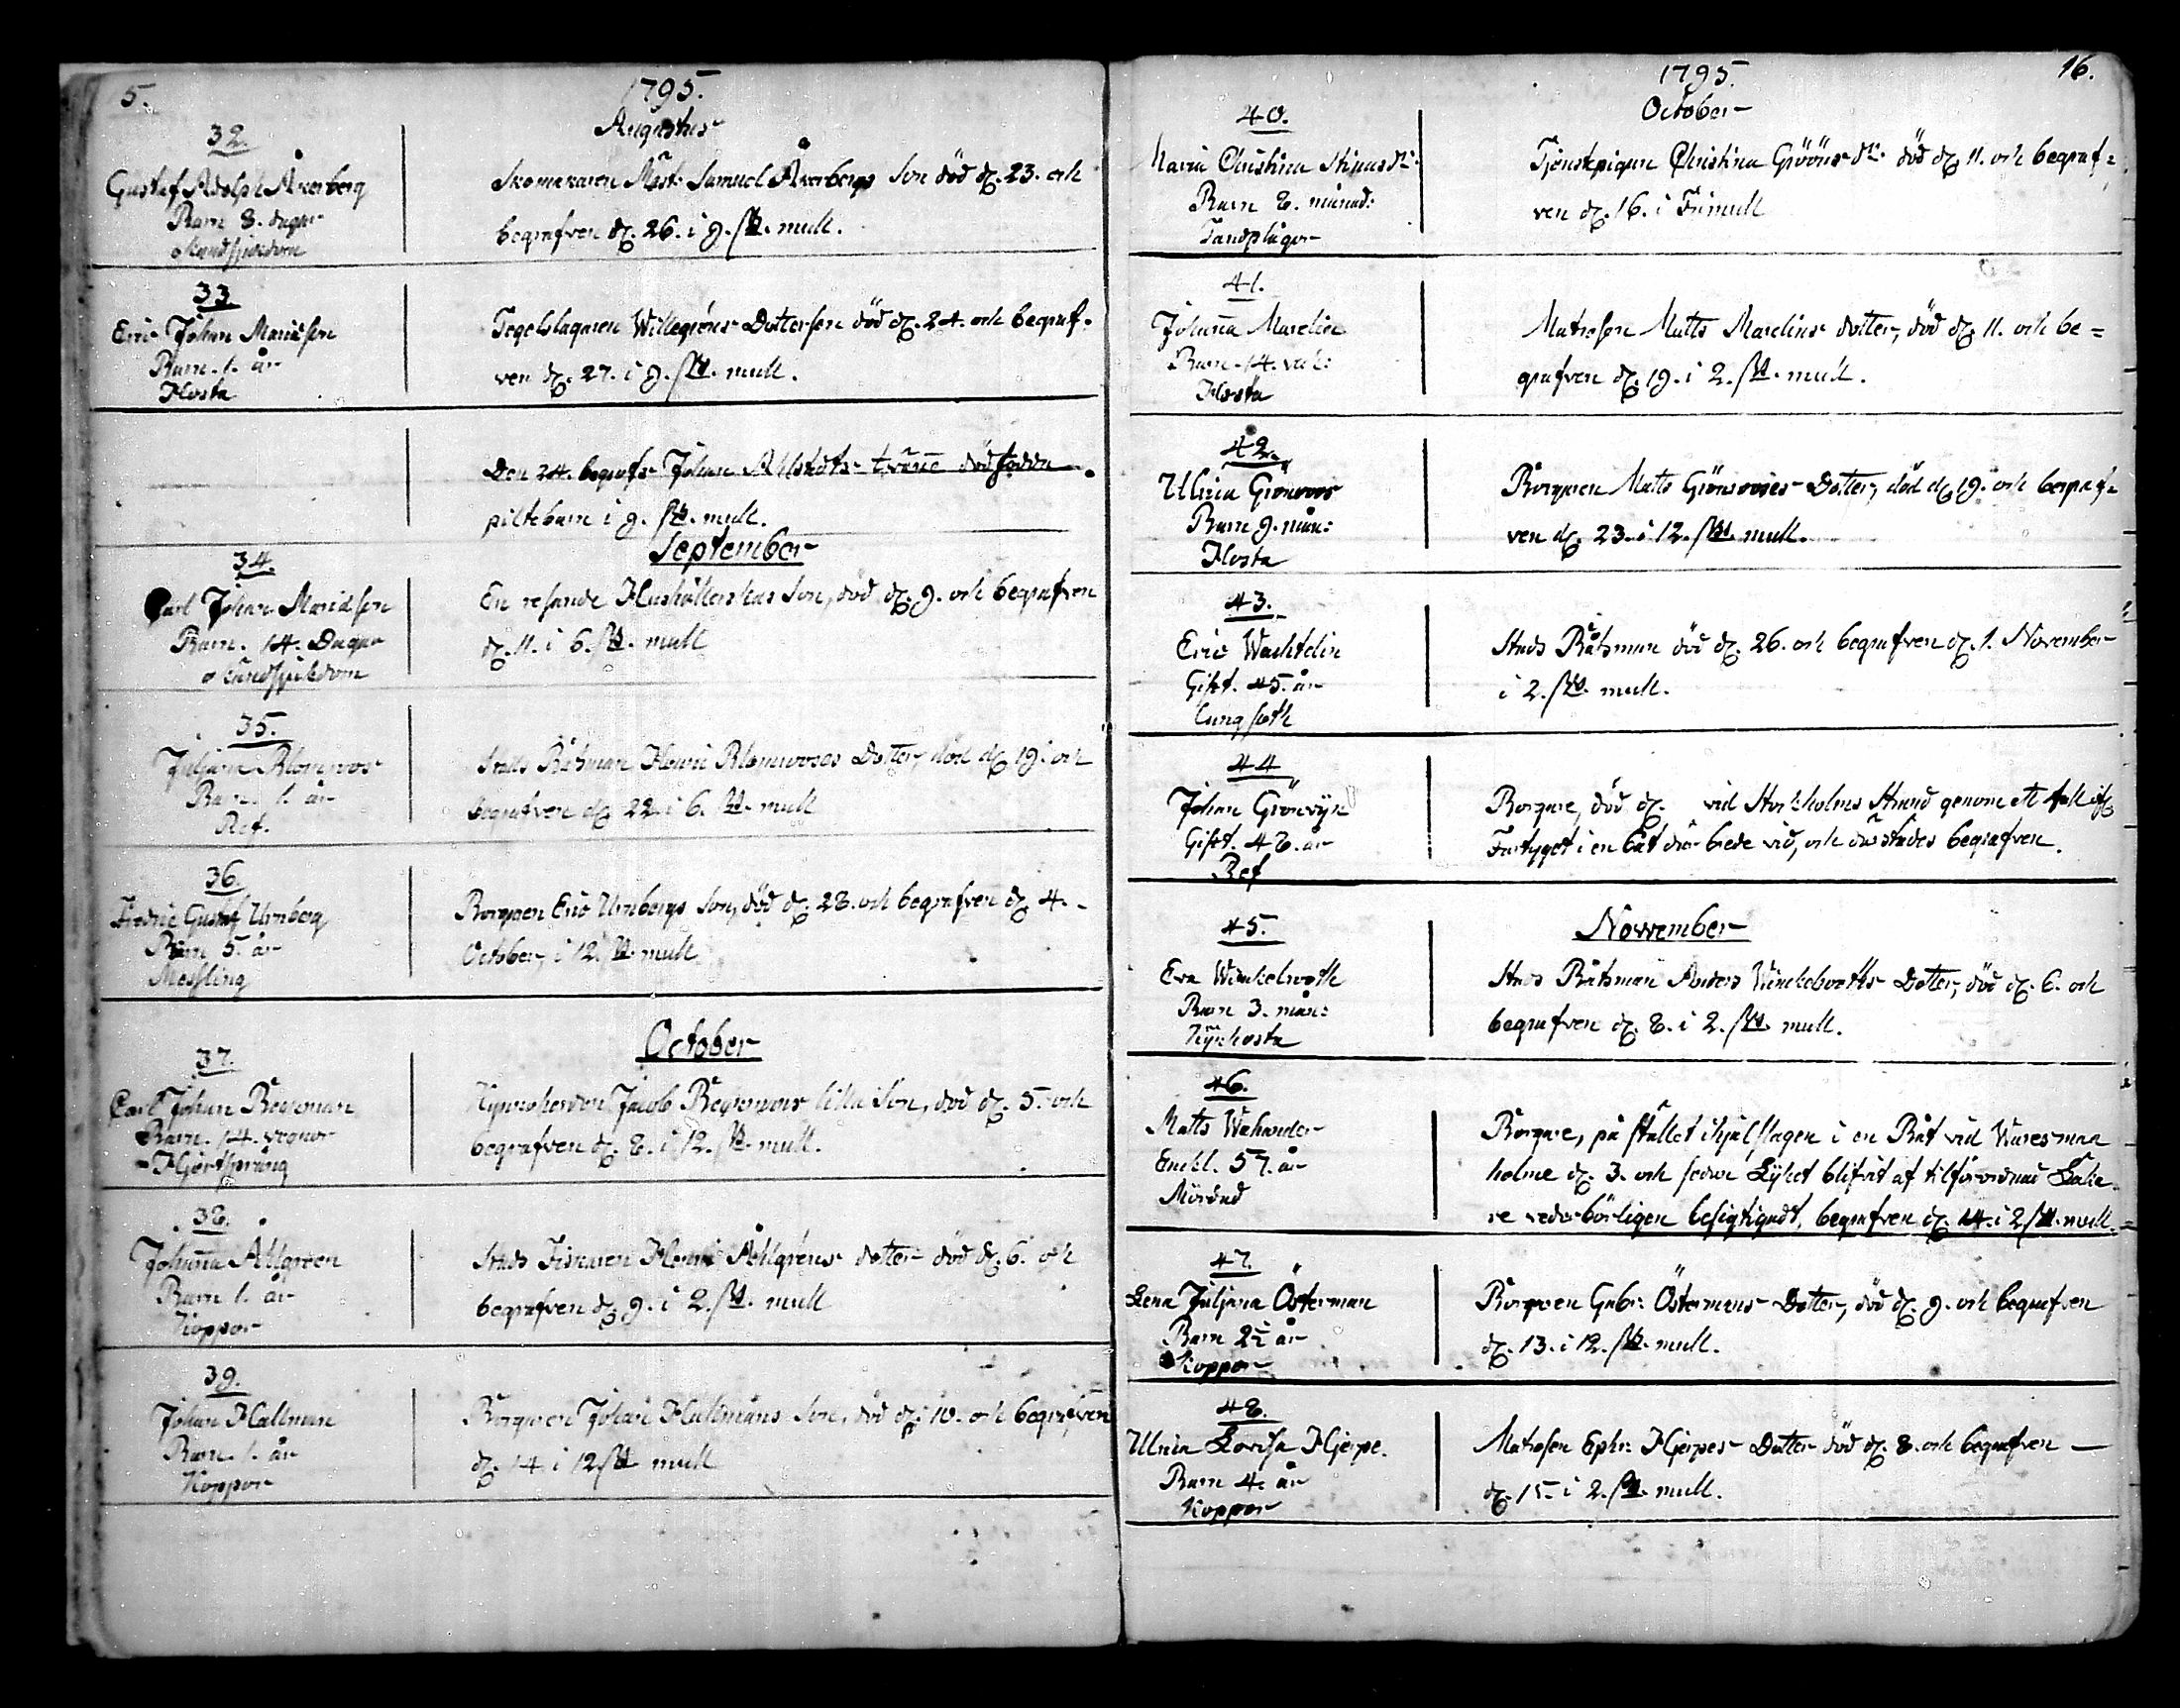 5.
1795.
Augustus
32.
Gustaf Adolph Åkerberg
Barn 8. dagar
Mundsjukdom
Skomakaren Mäst. Samuel Åkerbergs Son död d. 23. och
begrafven d. 26. i 9. sk. mull.
33.
Eric Johan Mariæson
Barn. 1. år
Hosta
Tegelslagaren Willegréns Dotterson död d. 24. och begraf-
ven d. 27. i 9. sk. mull.
Den 24. begrofs Johan Ahlstedts tvänne dödfödda
piltebarn i 9. sk. mull.
September
34.
Carl Johan Mariæson
Barn. 14. Dagar
okänd sjukdom
En resande Hushållerskas Son, död d. 9. och begrafven
d. 11. i 6. sk. mull
35.
Juljana Blomroos
Barn. 1. år
Ref.
Stads Båtsman Henric Blomrooses Dotter, död d. 19. och
begrafven d. 22. i 6. sk. mull
36.
Fredric Gustaf Urnberg
Barn 5. år
Messling
Borgaren Eric Urnbergs Son, död d. 28. och begrafven d. 4.
October, i 12. sk. mull
October
37.
Carl Johan Bergman
Barn. 14. veckor
Hjertsprång
Jacob Bergmans lilla Son, död d. 5. och
begrafven d. 8. i 12. sk. mull.
38.
Johanna Ahlgreen
Barn 1. år
Koppor
Stads Fiskaren Henric Åhlgréns dotter död d. 6. och
begrafven d. 9. i 2. sk. mull
39.
Johan Hallman
Barn. 1. år
Koppor
Borgaren Johan Hallmans Son, död d. 10. och begrafven
d. 14 i 12 sk mull
16.
1795.
October
40.
Maria Christina Stinasdr.
Barn 8. månad:
Tandplågor
Tjenstpigan Christina Gröönsdr. död d. 11. och begraf-
ven d. 16. i Frimull
41.
Johanna Marelia
Barn. 14. vek:
Hosta
Matrosen Matts Marelius dotter, död d. 11. och be=
grafven d. 19. i 2. sk. mull.
42.
Ulrica Grönroos
Barn 9. mån:
Hosta
Borgaren Matts Grönrooses Dotter, död d. 19. och begraf-
ven d. 23. i 12. sk. mull.
43.
Eric Wachtelin
Gift. 45. år
Lungsoth
Stads Båtsman död d. 26. och begrafven d. 1. November
i 2. sk. mull.
44
Johan Grönvijn
Gift. 48. år
Ref
Borgare, död d. vid Stockholms Strand genom ett fall
Fartyget i en båt där brede vid, och därstädes begrafven.
November
45.
Eva Winckelroth
Barn 3. mån:
Kijkhosta
Stads Båtsman Anders Winckelroths Dotter, död d. 6. och
begrafven d. 8. i 2. sk. mull.
46.
Matts Wahander
Enckl. 57. år
Mördad
Borgare, på stället ihjälslagen i en Båt vid
holme d. 3. och sedan Lijket blifvit af tilförordnad Läka-
re vederbörligen besigtigadt, begrafven d. 14. i 2 sk. mull.
47.
Lena Juljana Österman
Barn 2½ år
Koppor
Borgaren Gabr: Östermans Dotter, död d. 9. och begrafven
d. 13. i 12. sk. mull.
48.
Ulrica Lovisa Hjerpe.
Barn 4. år
Koppor
Matrosen Ephr: Hjerpes Dotter död d. 8. och begrafven
d. 15. i 2. sk. mull.